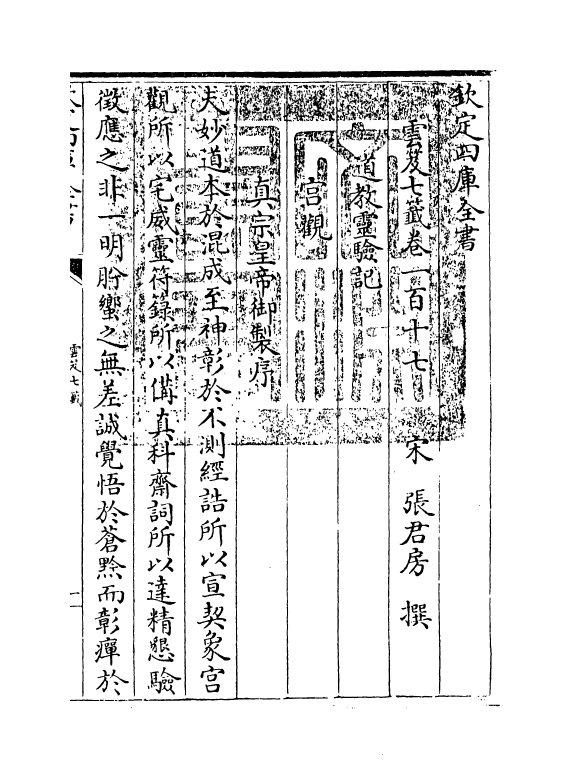 欽定四庫全書
雲笈七籤卷一百十七　宋　張君房　撰
道教靈驗記
宫觀
真宗皇帝御製序
夫妙道本於混成至神彰於不測經誥所以宣契象宫
觀所以宅威靈符籙所以備真科齋詞所以達精懇驗
徵應之非一明肹蠁之無差誠覺悟於蒼黔而彰癉於
雲笈七籤
一